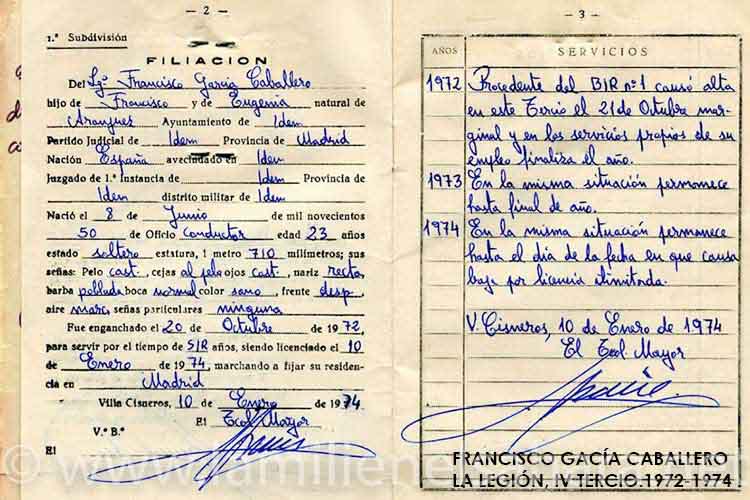 — 2 —
1.ª Subdivisión
FILIACION
Del Lgº Francisco García Caballero
hijo de Francisco y de Eugenia natural de
Aranjuez Ayuntamiento de Idem
Partido Judicial de Idem Provincia de Madrid
Nación España avecindado en Idem
Juzgado de 1.ª instancia de Idem Provincia de
Idem distrito militar de Idem
Nació el 8 de Junio de mil novecientos
50 de Oficio Conductor edad 23 años
estado soltero estatura, 1 metro 710 milímetros; sus
señas: Pelo cast, cejas al pelo ojos cast, nariz recta,
barba poblada boca normal color sano, frente desp,
aire marc, señas particulares ninguna
Fue enganchado el 20 de Octubre de 1972,
para servir por el tiempo de años, siendo licenciado el 10
de Enero de 1974, marchando a fijar su residen-
cia en Madrid
Villa Cisneros, 10 de Enero de 1974
El Tcol. Mayor
V.º B.º
El
— 3 —
AÑOS SERVICIOS
1972 Procedente del BIR nº 1 causó alta
en este Tercio el 21 de Octubre mar-
ginal y en los servicios propios de su
empleo finaliza el año.
1973 En la misma situación permanece
hasta final de año.
1974 En la misma situación permanece
hasta el día de la fecha en que causa
baja por licencia ilimitada.
V. Cisneros, 10 de Enero de 1974
El Tcol. Mayor
FRANCISCO GACÍA CABALLERO
LA LEGIÓN, IV TERCIO.1972-1974